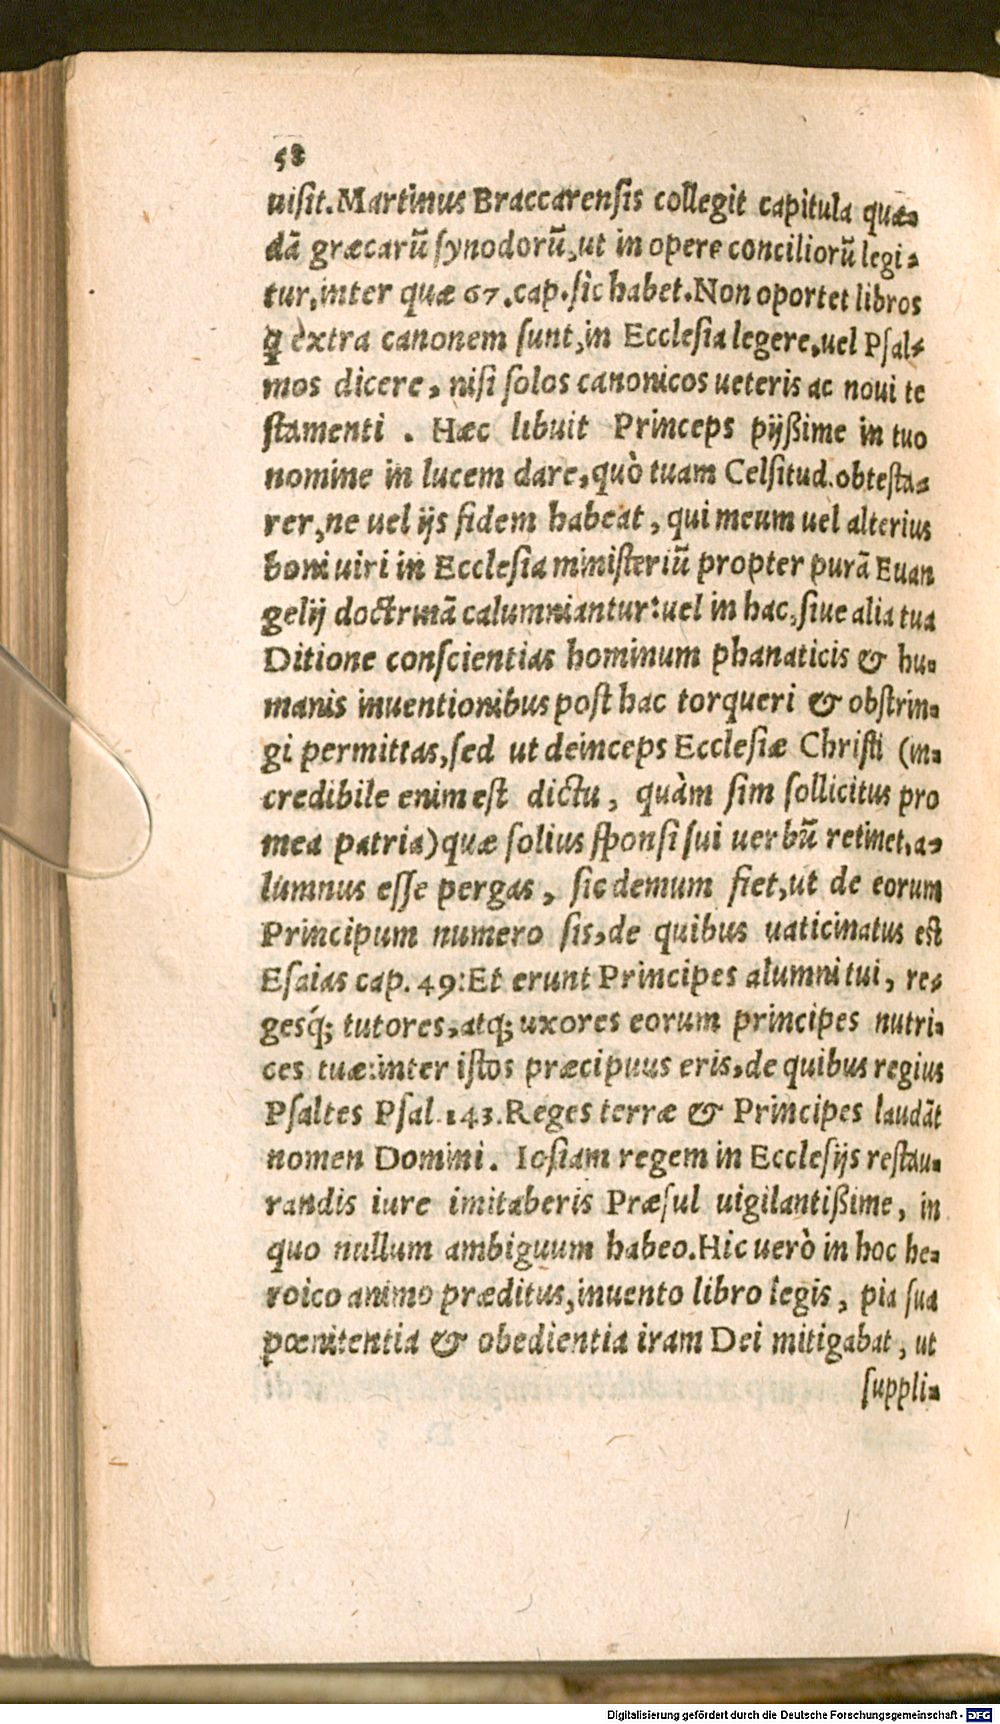 58
uiſit. Martinus Braccarenſis collegit capitula quæ-
dā græcarū ſynodorū, ut in opere conciliorū legi-
tur, inter quæ 67. cap. ſic habet. Non oportet libros
q̄ extra canonem ſunt, in Eccleſia legere, uel Pſal-
mos dicere, niſi ſolos canonicos ueteris ac noui te
ſtamenti. Hæc libuit Princeps pijßime in tuo
nomine in lucem dare, quò tuam Celſitud. obteſta-
rer, ne uel ijs fidem habeat, qui meum uel alterius
boni uiri in Eccleſia miniſteriū propter purā Euan
gelij doctrinā calumniantur: uel in hac, ſiue alia tua
Ditione conſcientias hominum phanaticis & hu-
manis inuentionibus poſt hac torqueri & obſtrin-
gi permittas, ſed ut deinceps Eccleſiæ Chriſti (in-
credibile enim eſt dictu, quàm ſim ſollicitus pro
mea patria) quæ ſolius ſponſi ſui uerbū retinet, a-
lumnus eſſe pergas, ſic demum fiet, ut de eorum
Principum numero ſis, de quibus uaticinatus eſt
Eſaias cap. 49: Et erunt Principes alumni tui, re-
gesq́; tutores, atq; uxores eorum principes nutri-
ces tuæ: inter iſtos præcipuus eris, de quibus regius
Pſaltes Pſal. 143. Reges terræ & Principes laudāt
nomen Domini. Ioſiam regem in Eccleſijs reſtau-
randis iure imitaberis Præſul uigilantißime, in
quo nullum ambiguum habeo. Hic uerò in hoc he-
roico animo præditus, inuento libro legis, pia ſua
pœnitentia & obedientia iram Dei mitigabat, ut
ſuppli-
Digitalisierung gefördert durch die Deutsche Forschungsgemeinschaft - DFG